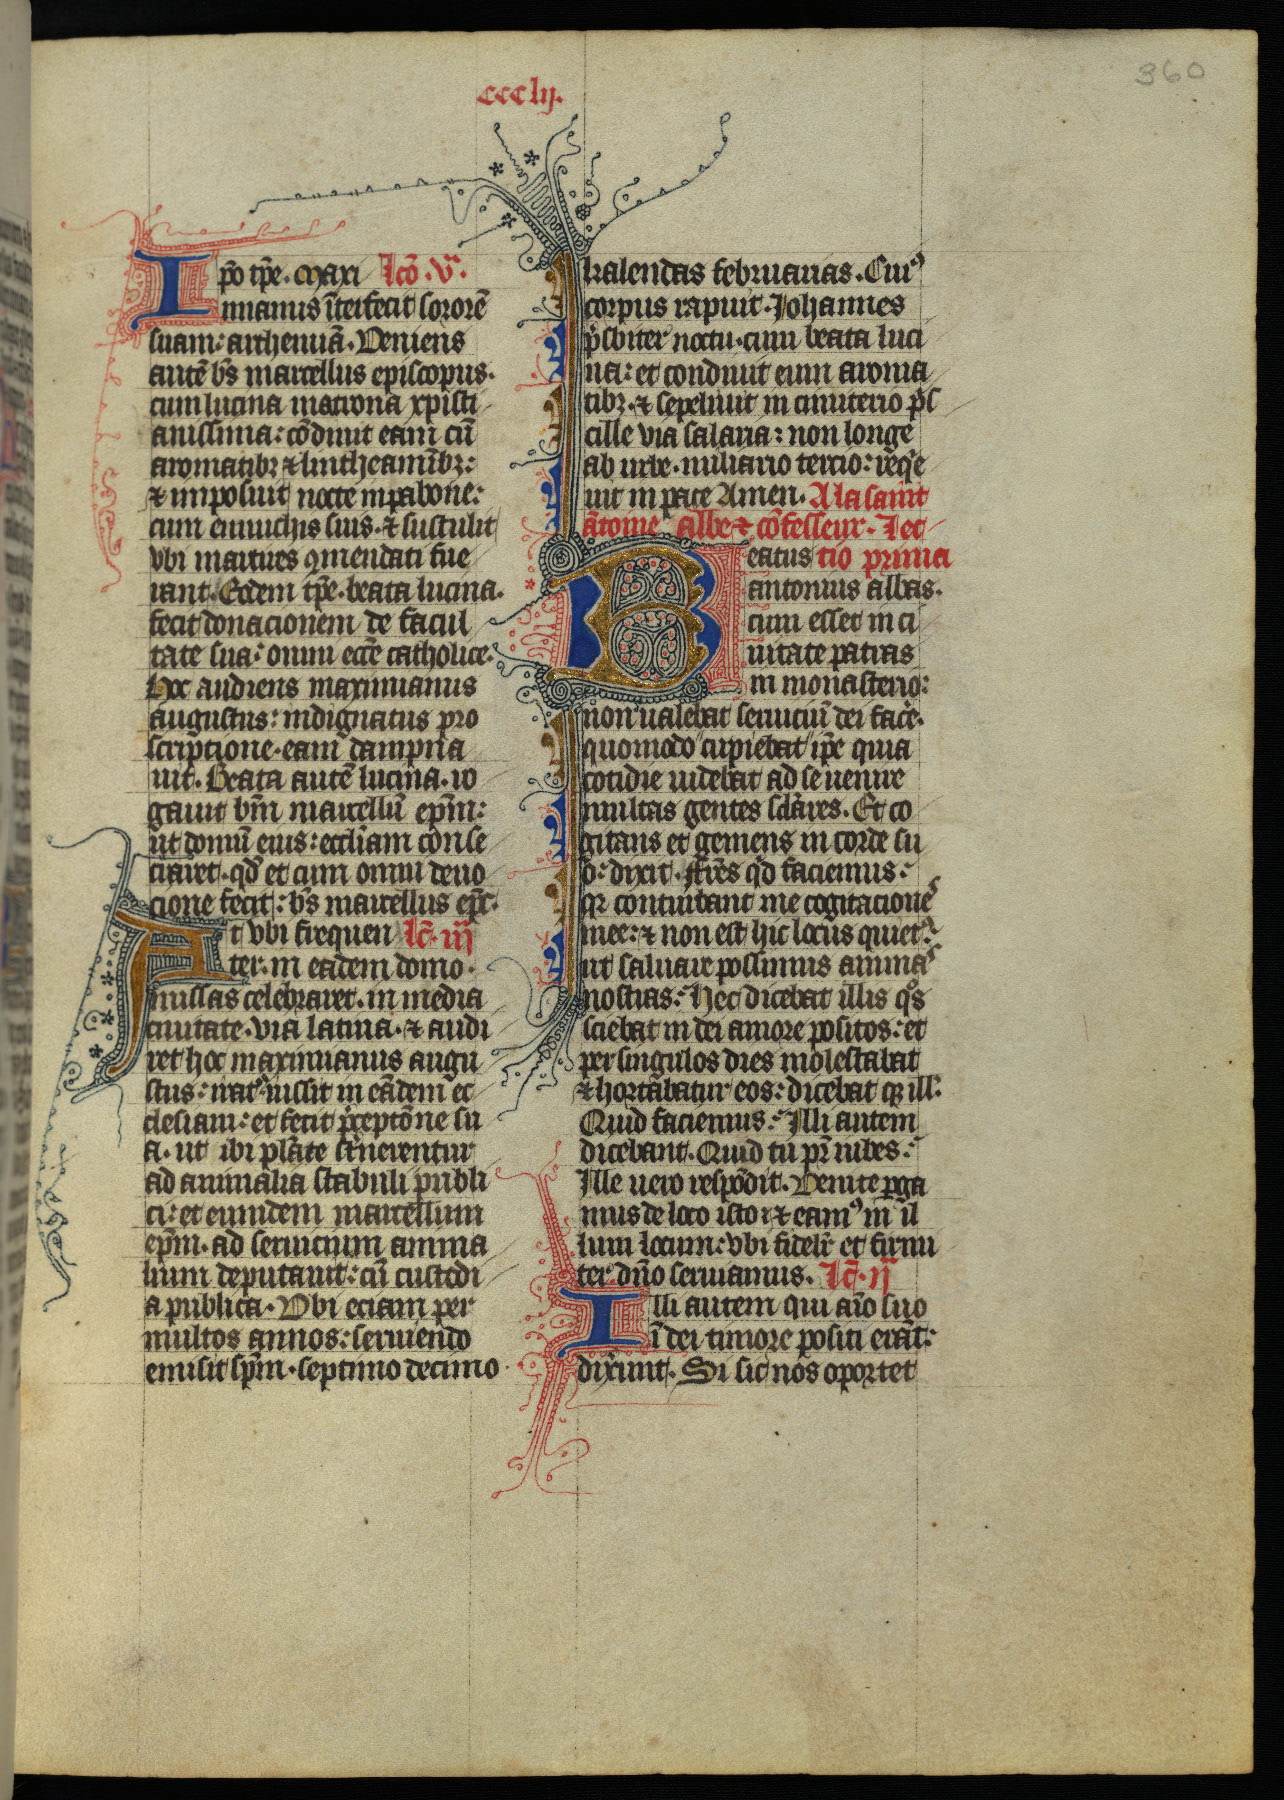 ccclij.
360
Ipo tp̄e. maxi lc̄o. v̄.
mianus īterfecit sororē
suam: arthemiā. Veniens
autē bs̄ marcellus episcopus.
cum lucina matrona xpisti
anissima: cōdiuit eam cū
aromatibꝫ ⁊ lintheamībꝫ:
⁊ imposuit nocte in pabone:
cum eunuchis suis. ⁊ sustulit
vbi martires qmendati fue
rant. Eodem tp̄e. beata lucina.
fecit donacionem de facul
tate sua: omni ecc̄e catholice.
Hoc audiens maximianus
augustus: indignatus pro
scriptione. eam dampna
uit. Beata autē lucina. ro
gauit bm̄ marcellū ep̄m:
ut domū eius: eccl̄iam conse
craret. qd̓ et cum omni deuo
cione fecit: bs̄ marcellus ep̄c.
At vbi frequen lc̄. iij
ter. in eadem domo.
missas celebraret. in media
ciuitate. via latina. ⁊ audi
ret hoc maximianus augu
stus: iratꝰ iussit in eādem ec
clesiam: et fecit p̄ceptōne su
a. ut ibi plāte st̓nerentur
ad animalia stabuli publi
ci: et eumdem marcellum
ep̄m. ad seruicium anima
lium deputauit: cū custodi
a publica. Vbi eciam per
multos annos: seruiendo
emisit sp̄m. septimo decimo
kalendas februarias. Cuiꝰ
corpus rapuit. Johannes
p̓sbiter noctu. cum beata luci
na: et condiuit eum aroma
tibꝫ. ⁊ sepeliuit in cimiterio p̓s
cille via salaria: non longe
ab urbe. miliario tercio: req̓e
uit in pace Amen. A la saint
ātoine abbe ⁊ cōfesseur. Lec
Beatus tio prima
antonius abbas.
cum esset in ci
uitate patras
in monasterio:
non ualebat seruiciū dei fac̓e.
quomodo cupiebat ip̄e quia
cotidie uidebat ad se uenire
multas gentes sc̄lares. Et co
gitans et gemens in corde su
o: dixit. Fr̄es qd̓ faciemus:
qꝛ conturbant me cogitacione᷒
mee: ⁊ non est hic locus quiet᷒
ut saluare possimus anima᷒
nostras: Hec dicebat illis qͦs
sciebat in dei amore positos: et
per singulos dies molestabat
⁊ hortabatur eos: dicebat qꝫ ill̓.
Quid faciemus: Illi autem
dicebant. Quid tu pr̄ iubes:
Ille uero respōdit. Venite ꝑga
mus de loco isto: ⁊ eamꝰ in il
lum locum: vbi fidelr̄ et firmi
ter. dn̄o seruiamus. lc̄. ij
Illi autem qui aīo suo
ī dei timore positi erāt:
dixerunt. Si sic nos oportet